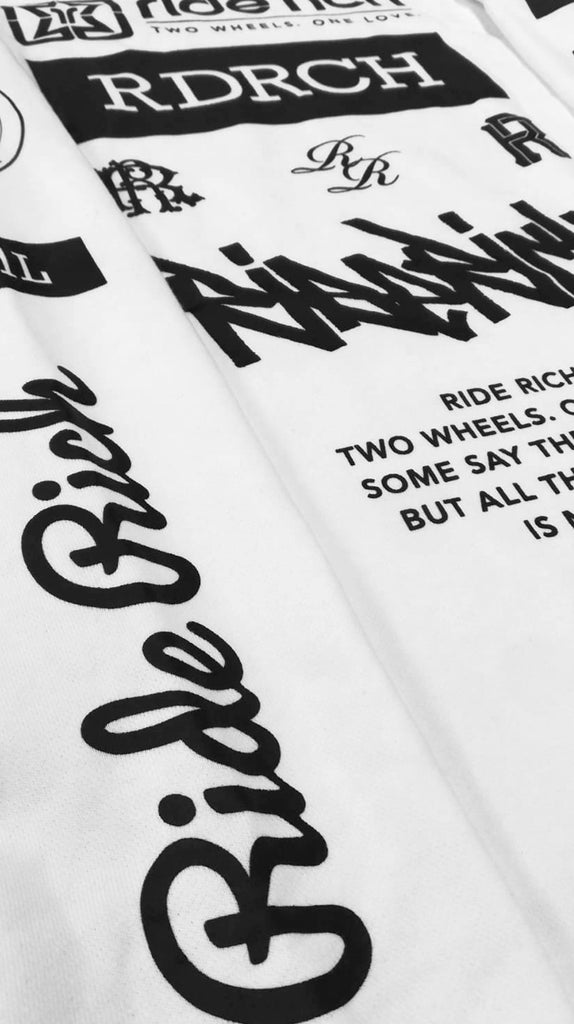 ride rich
TWO WHEELS. ONE LOVE.
RDRCH
RR
RR
RR
RIDERICH
RIDE RICH
TWO WHEELS.
SOME SAY
BUT ALL
IS
Ride Rich